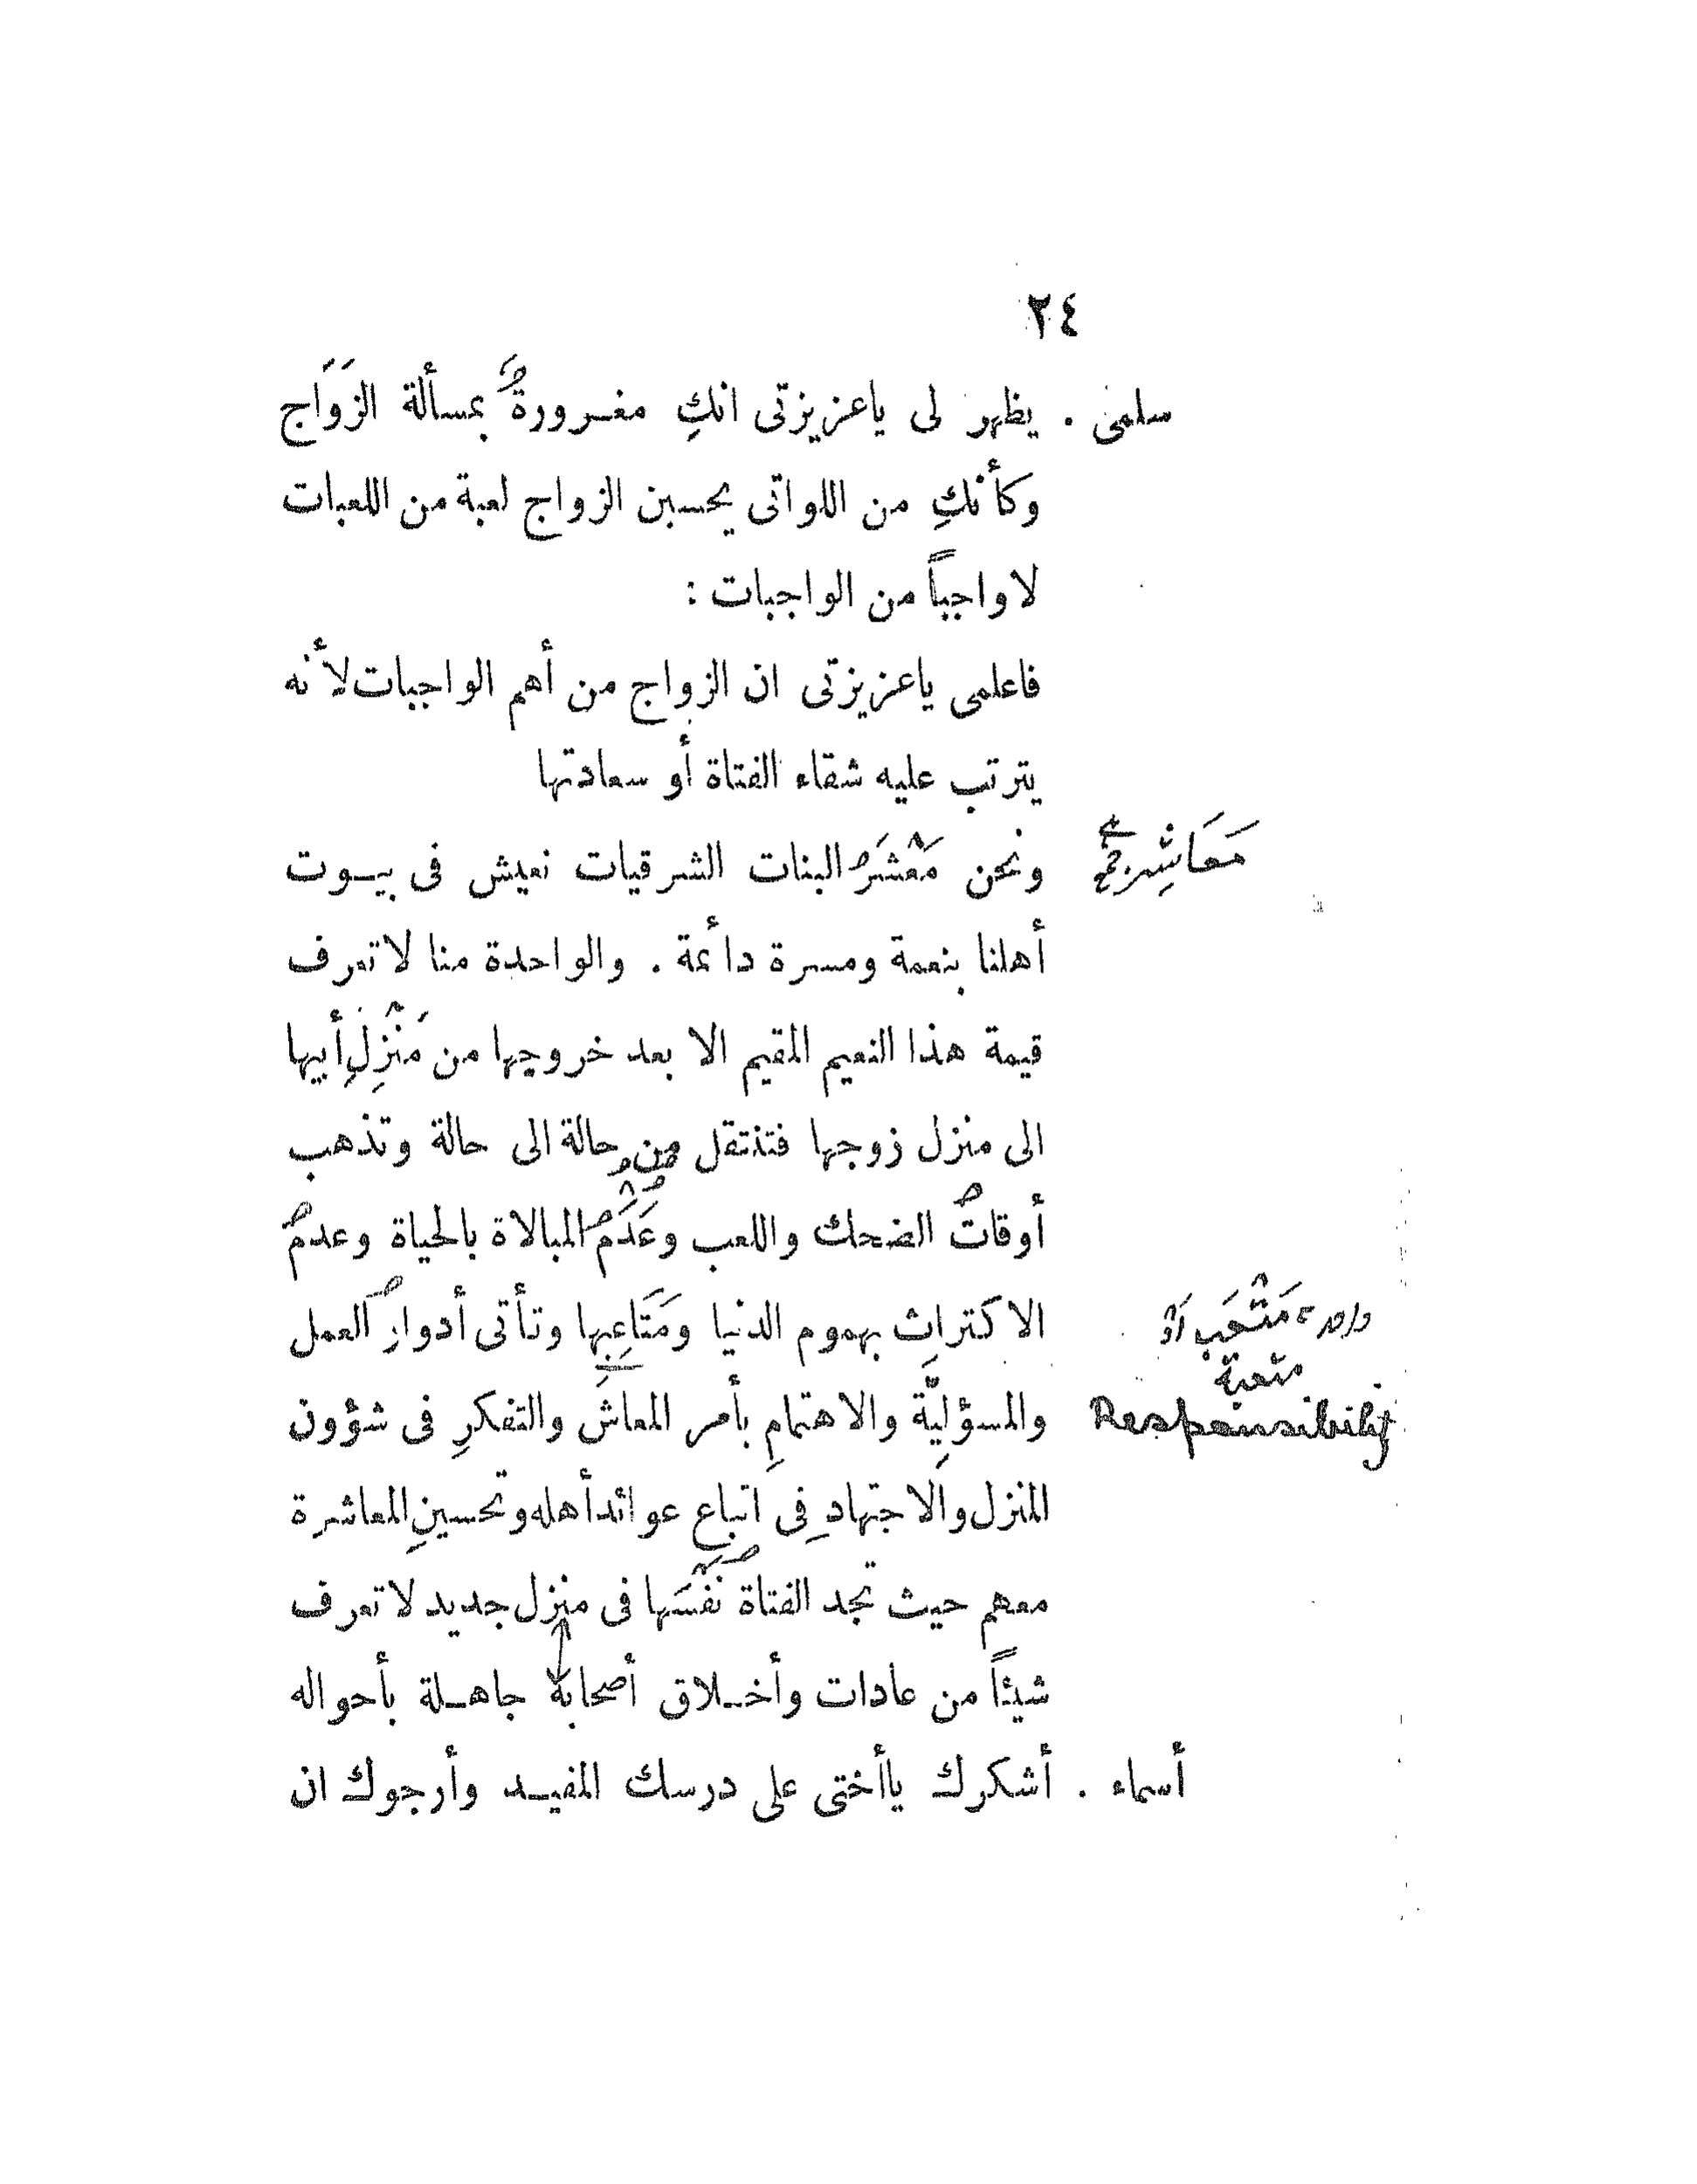 ٢٤
سلمى . يظهر لى ياعزيزتى انكِ مغـرورةٌ بمسألة الزَوَاج
وكأنكِ من اللواتى يحسبن الزواج لعبة من اللعبات
لاواجباً من الواجبات :
فاعلمى ياعزيزتى ان الزواج من أهم الواجبات لأنه
يترتب عليه شقاء الفتاة أو سعادتها
ونحن مَعْشَرَ البنات الشرقيات نعيش فى بيـوت
مَعَاشِر
أهلنا بنعمة ومسرة دائمة . والواحدة منا لاتعرف
قيمة هذا النعيم المقيم الا بعد خروجها من مَنْزِلِ أبيها
الى منزل زوجها فتنتقل من حالة الى حالة وتذهب
أوقاتُ الضحك واللعب وعَدَمُ المبالاة بالحياة وعدمُ
الاكتراث بهموم الدنيا ومَتَاعِبِها وتأتى أدوار العمل
واحد مَتْعَب
متعبة
والمسؤليَّة والاهتمامِ بأمر المعاش والتفكرِ فى شؤون
Responsibility
المنزل والاجتهادِ فى اتباعِ عوائد أهله وتحسينِ المعاشرة
معهم حيث تجد الفتاة نَفْسَها فى منزل جديد لاتعرف
شيئاً من عادات وأخـلاق أصحابه جاهـلة بأحواله
أسماء . أشكرك ياأختى على درسك المفيـد وأرجوك ان